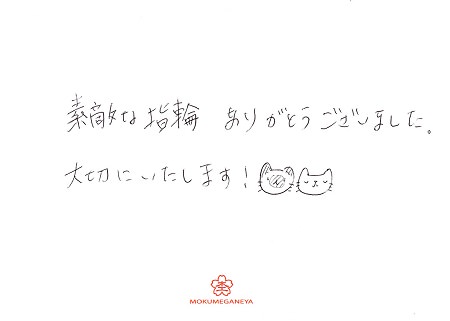 素敵な指輪 ありがとうございました。
大切にいたします!
MOKUMEGANEYA